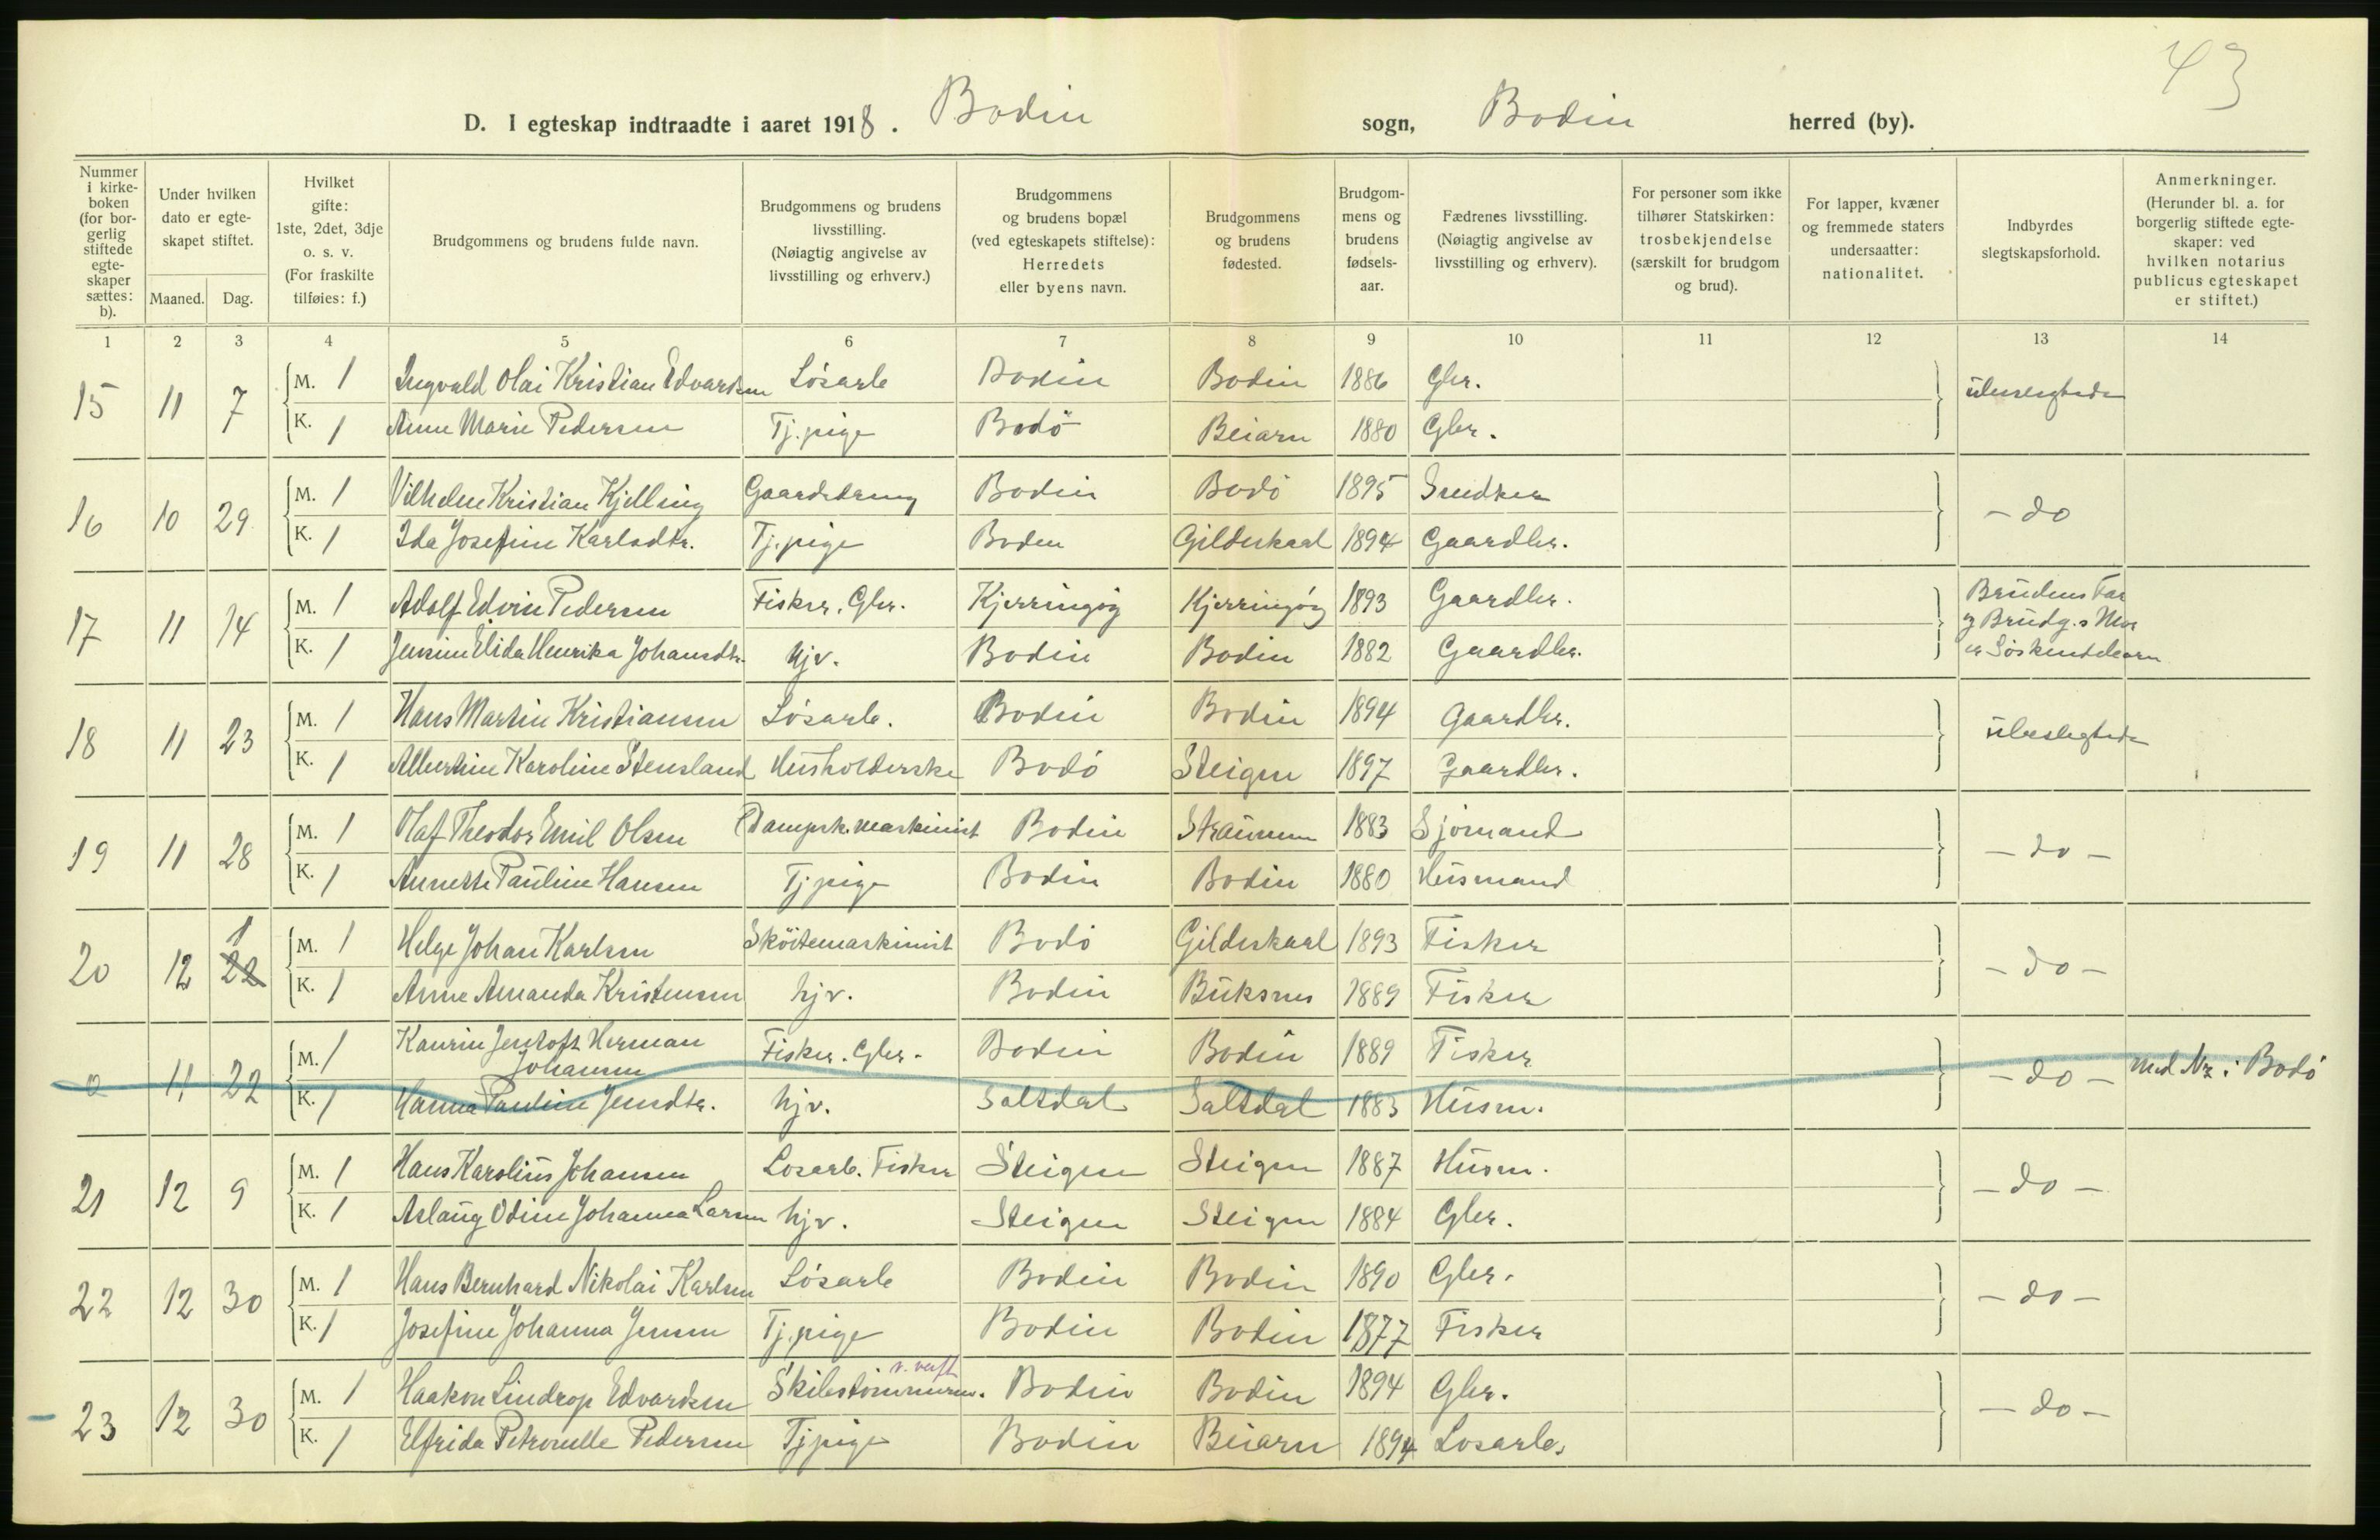 43
D. I egteskap indtraadte i aaret 1918. Bodin sogn, Bodin herred (by).
Nummer i kirke-boken (for bor-gerlig stiftede egte-skaper sættes: b).
Under hvilken dato er egte-skapet stiftet.
Maaned. Dag.
Hvilket gifte: 1ste, 2det, 3dje o. s. v. (For fraskilte tilføies: f.)
Brudgommens og brudens fulde navn.
Brudgommens og brudens livsstilling. (Nøiagtig angivelse av livsstilling og erhverv.)
Brudgommens og brudens bopæl (ved egteskapets stiftelse): Herredets eller byens navn.
Brudgommens og brudens fødested.
Brudgom-mens og brudens fødsels-aar.
Fædrenes livsstilling. (Nøiagtig angivelse av livsstilling og erhverv).
For personer som ikke tilhører Statskirken: trosbekjendelse (særskilt for brudgom og brud).
For lapper, kvæner og fremmede staters undersaatter: nationalitet.
Indbyrdes slegtskapsforhold.
Anmerkninger. (Herunder bl. a. for borgerlig stiftede egte-skaper: ved hvilken notarius publicus egteskapet er stiftet.)
1 2 3 4 5 6 7 8 9 10 11 12 13 14
15 11 7 M. 1 Ingvald Olai Kristian Edvardsen Løsarb Bodin Bodin 1886 Gbr. ubeslegtede
K. 1 Anne Marie Pedersen Tj.pige Bodø Beiarn 1880 Gbr.
16 10 29 M. 1 Vilhelm Kristian Kjelling Gaardsdreng Bodin Bodö 1895 Snedker - do
K. 1 Ida Josefine Karlsdtr. Tj.pige Boden Gildeskaal 1894 Gaardbr.
17 11 14 M. 1 Adolf Edvin Pedersen Fisker. Gbr. Kjerringøy Kjerringøy 1893 Gaardbr. Brudens Far og Brudg.s Mor er Søskendebarn
K. 1 Jensine Elida Henrika Johansdtr. hjv. Bodin Bodin 1882 Gaardbr.
18 11 23 M. 1 Hans Martin Kristiansen Løsarb. Bodin Bodin 1894 Gaardbr. ubeslegtede
K. 1 Albertine Karoline Stensland Husholderske Bodö Steigen 1897 Gaardbr.
19 11 28 M. 1 Olaf Theodor Emil Olsen Dampsk.maskinist Bodin Straumen 1883 Sjømand - do -
K. 1 Annette Pauline Hansen Tjpige Bodin Bodin 1880 Husmand
20 12 1 22 M. 1 Helge Johan Karlsen Sköitemaskinist Bodö Gildeskaal 1893 Fisker - do -
K. 1 Anne Amanda Kristensen hjv. Bodin Buksnes 1889 Fisker
0 11 22 M. 1 Kaurin Jentoft Herman Johansen Fisker. Gbr. Bodin Bodin 1889 Fisker - do - med Nr i Bodö
K. 1 Hanna Pauline Jensdtr. hjv. Saltdal Saltdal 1883 Husm.
21 12 9 M. 1 Hans Karolius Johansen Losarb. Fisker Steigen Steigen 1887 Husm. - do -
K. 1 Aslaug Odine Johanna Larsen hjv. Steigen Steigen 1884 Gbr.
22 12 30 M. 1 Hans Bernhard Nikolai Karlsen Løsarb Bodin Bodin 1890 Gbr. - do -
K. 1 Josefine Johanna Jensen Tj.pige Bodin Bodin 1877 Fisker
v. verft
23 12 30 M. 1 Haakon Lindrop Edvardsen Skibstømmerm. Bodin Bodin 1894 Gbr. - do -
K. 1 Elfrida Petronelle Pedersen Tjpige Bodin Beiarn 1894 Losarb.